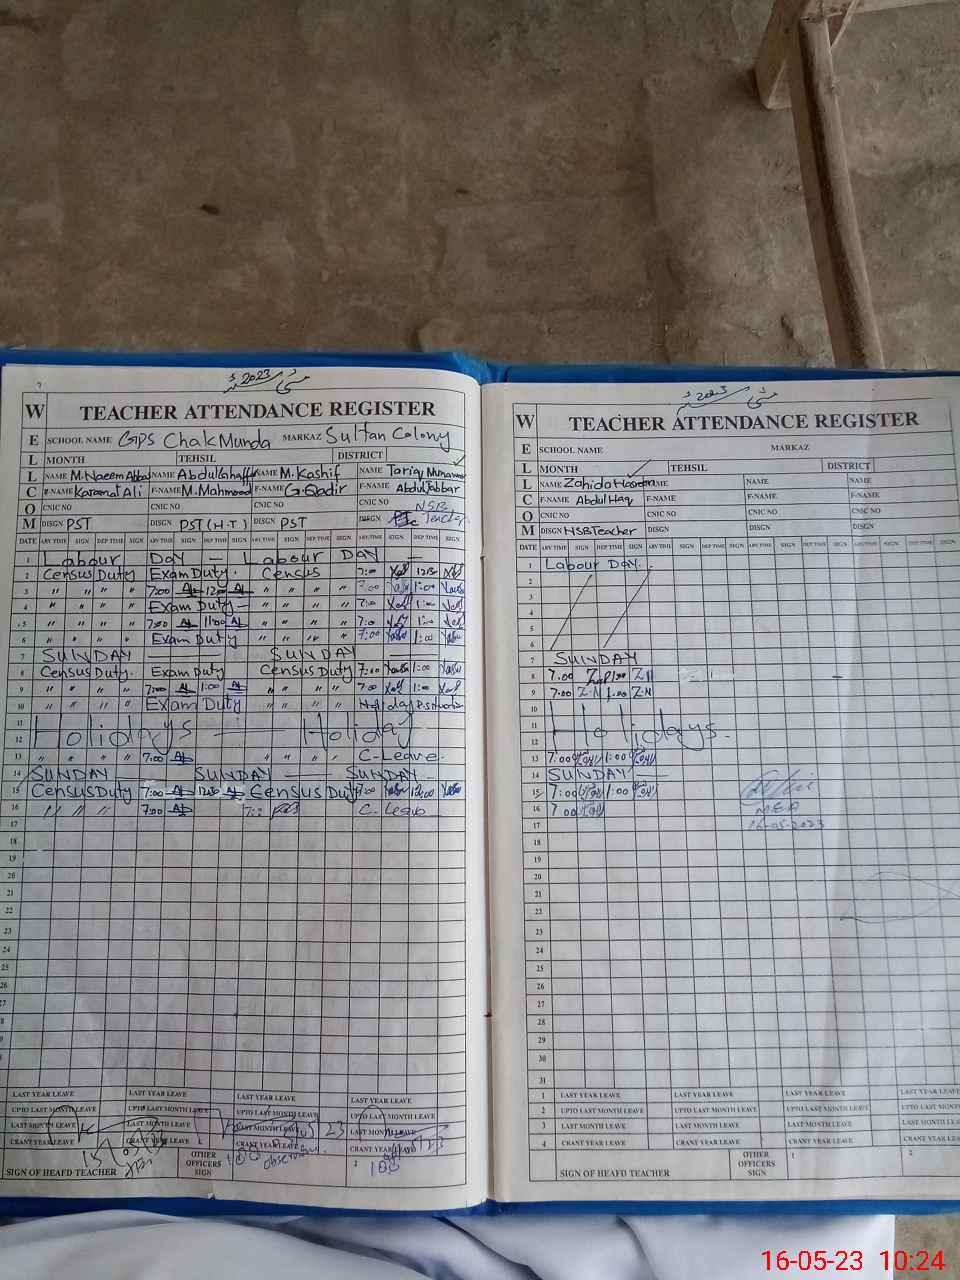 مئی 2023ء
TEACHER ATTENDANCE REGISTER
W E L L C O M
SCHOOL NAME GPS Chak Munda MARKAZ Sultan Colony
MONTH TEHSIL DISTRICT
NAME M.Naeem Abbas NAME Abdul Ghaffar NAME M. Kashif NAME Tariq Munawar
F-NAME Karamat Ali F-NAME M.Mahmood F-NAME G.Qadir F-NAME Abdul Jabbar
CNIC NO CNIC NO CNIC NO CNIC NO NSB
DISGN PST DISGN PST (H.T) DISGN PST DISGN Teacher
DATE ARV TIME SIGN DEP TIME SIGN ARV TIME SIGN DEP TIME SIGN ARV TIME SIGN DEP TIME SIGN ARV TIME SIGN DEP TIME SIGN
1 Labour Day — Labour Day —
2 Census Duty Exam Duty. Census 7:00
3 " " " " 7:00 12:00 " " " " 7:00 1:00
4 " " " " Exam Duty - " " " " 7:00 1:00
5 " " " " 7:00 11:00 " " " " 7:00 1:00
6 " " " " Exam Duty " " " " 7:00 1:00
7 SUNDAY SUNDAY
8 Census Duty. Exam Duty Census Duty 7:00 1:00
9 " " " " 7:00 1:00 " " " " 7:00 1:00
10 " " " " Exam Duty " " " " Holiday
11
12 Holidays — Holiday
13 " " " " 7:00 " " " " C-Leave.
14 SUNDAY — SUNDAY — SUNDAY
15 Census Duty 7:00 12:30 Census Duty 12:00
16 " " " 7:00 7:: C-Leave
17
18
19
20
21
22
23
24
25
26
27
28
LAST YEAR LEAVE LAST YEAR LEAVE LAST YEAR LEAVE LAST YEAR LEAVE
UPTO LAST MONTH LEAVE UPTO LAST MONTH LEAVE UPTO LAST MONTH LEAVE UPTO LAST MONTH LEAVE
LAST MONTH LEAVE LAST MONTH LEAVE LAST MONTH LEAVE LAST MONTH LEAVE
CRANT YEAR LEAVE CRANT YEAR LEAVE CRANT YEAR LEAVE CRANT YEAR LEAVE
SIGN OF HEAFD TEACHER OTHER OFFICERS SIGN 2
مئی 2023ء
TEACHER ATTENDANCE REGISTER
W E L L C O M
SCHOOL NAME MARKAZ
MONTH TEHSIL DISTRICT
NAME Zahida Hasreen NAME NAME NAME
F-NAME Abdul Haq F-NAME F-NAME F-NAME
CNIC NO CNIC NO CNIC NO CNIC NO
DISGN NSB Teacher DISGN DISGN DISGN
DATE ARV TIME SIGN DEP TIME SIGN ARV TIME SIGN DEP TIME SIGN ARV TIME SIGN DEP TIME SIGN ARV TIME SIGN DEP TIME SIGN
1 Labour Day.
2
3
4
5
6
7 SUNDAY
8 7.00 Z.N 1:00 Z.N
9 7:00 Z.N 1.00 Z.N
10
11 Holidays.
12
13 7:00 1:00
14 SUNDAY —
15 7:00 1:00
16 7:00 MEA
17 16-05-2023
18
19
20
21
22
23
24
25
26
27
28
29
30
31
1 LAST YEAR LEAVE LAST YEAR LEAVE LAST YEAR LEAVE LAST YEAR LEAVE
2 UPTO LAST MONTH LEAVE UPTO LAST MONTH LEAVE UPTO LAST MONTH LEAVE UPTO LAST MONTH LEAVE
3 LAST MONTH LEAVE LAST MONTH LEAVE LAST MONTH LEAVE LAST MONTH LEAVE
4 CRANT YEAR LEAVE CRANT YEAR LEAVE CRANT YEAR LEAVE CRANT YEAR LEAVE
SIGN OF HEAFD TEACHER OTHER OFFICERS SIGN 1 2
16-05-23 10:24